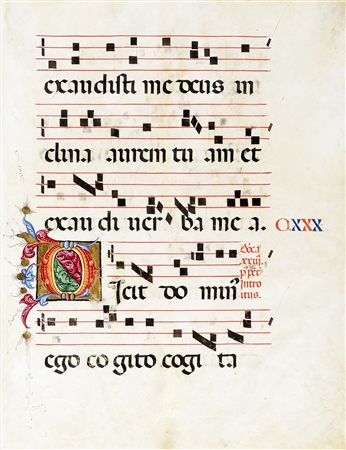 exaudisti me deus in
clina aurem tu am et
exau di ver ba me a. O.XXX
Dñca
xxiii.
p' pēt
Intro
itus.
Dicit do minꝰ
ego co gito cogi ta